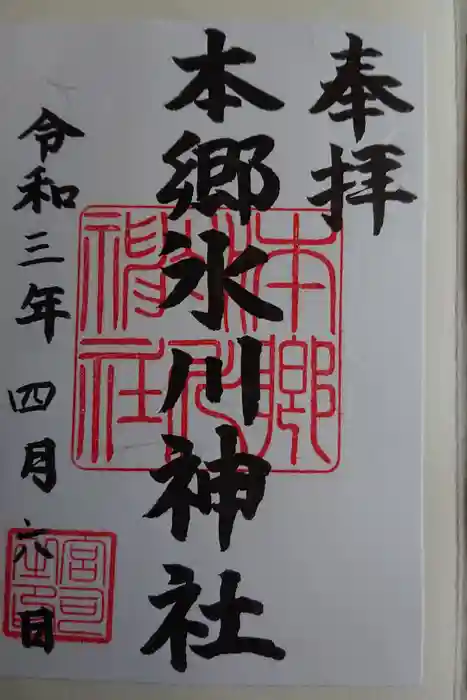 奉拝
本郷氷川神社
令和三年四月六日
本郷氷川神社